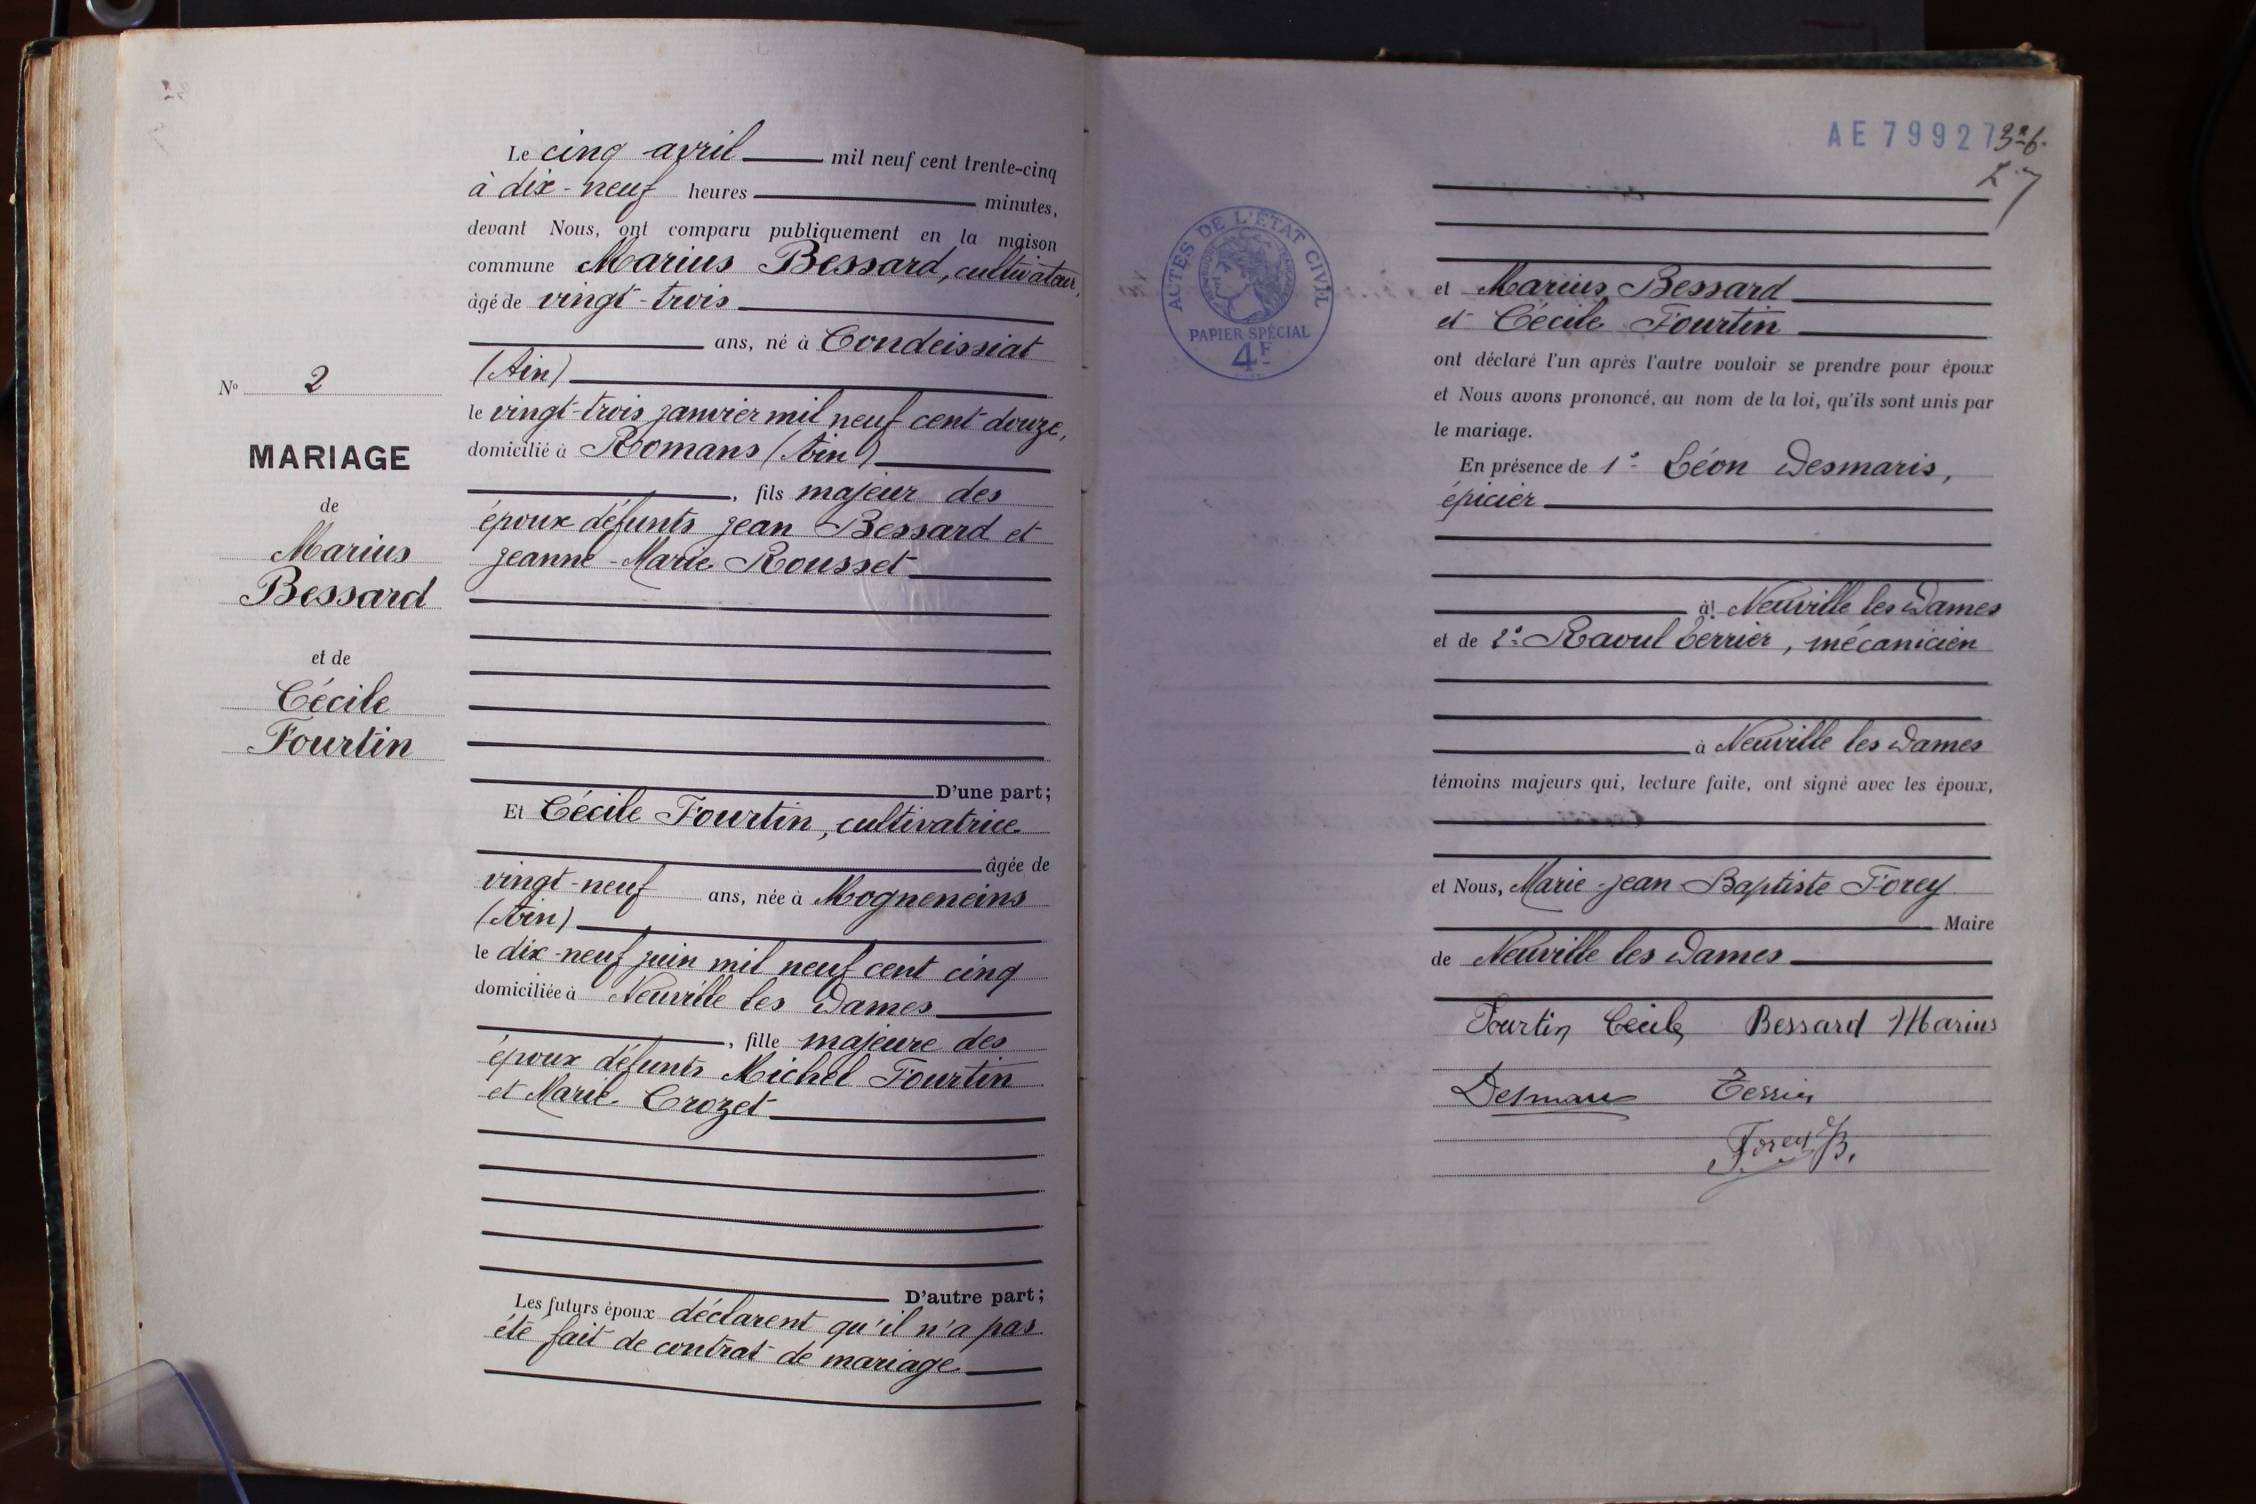 N° 2
MARIAGE
de
Marius
Bessard
et de
Cécile
Fourtin
Le cinq avril mil neuf cent trente-cinq
à dix-neuf heures minutes,
devant Nous, ont comparu publiquement en la maison
commune Marius Bessard, cultivateur,
âgé de vingt-trois
ans, né à Condeissiat
(Ain)
le vingt-trois janvier mil neuf cent douze,
domicilié à Romans (Ain)
, fils majeur des
époux défunts Jean Bessard et
Jeanne-Marie Rousset
D'une part;
Et Cécile Fourtin, cultivatrice
âgée de
vingt-neuf ans, née à Mogneneins
(Ain)
le dix-neuf juin mil neuf cent cinq
domiciliée à Neuville les Dames
, fille majeure des
époux défunts Michel Fourtin
et Marie Crozet
D'autre part;
Les futurs époux déclarent qu'il n'a pas
été fait de contrat de mariage
AE 79927
ACTES DE L'ÉTAT CIVIL
PAPIER SPÉCIAL
4F
et Marius Bessard
et Cécile Fourtin
ont déclaré l'un après l'autre vouloir se prendre pour époux
et Nous avons prononcé, au nom de la loi, qu'ils sont unis par
le mariage.
En présence de 1° Léon Desmaris,
épicier
à Neuville les Dames
et de 2° Raoul Terrier, mécanicien
à Neuville les Dames
témoins majeurs qui, lecture faite, ont signé avec les époux,
et Nous, Marie-Jean-Baptiste Forey
Maire
de Neuville les Dames
Fourtin Cécile Bessard Marius
Desmaris Terrier
Forey JB.